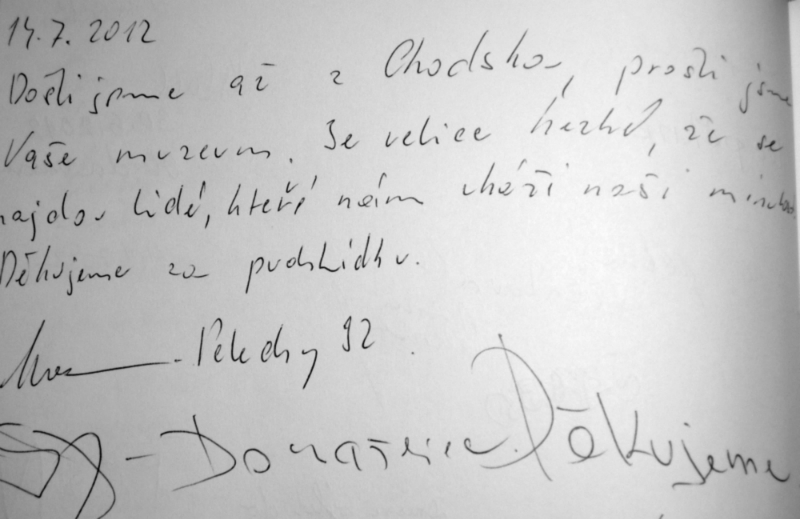 14.7.2012
Došli jsme až z Chodska, prošli jsme
Vaše muzeum. Je velice hezké, že se
najdou lidé, kteří nám ukáží naši minulost
Děkujeme za prohlídku.
Pelechy 92
- Domažlice. Děkujeme